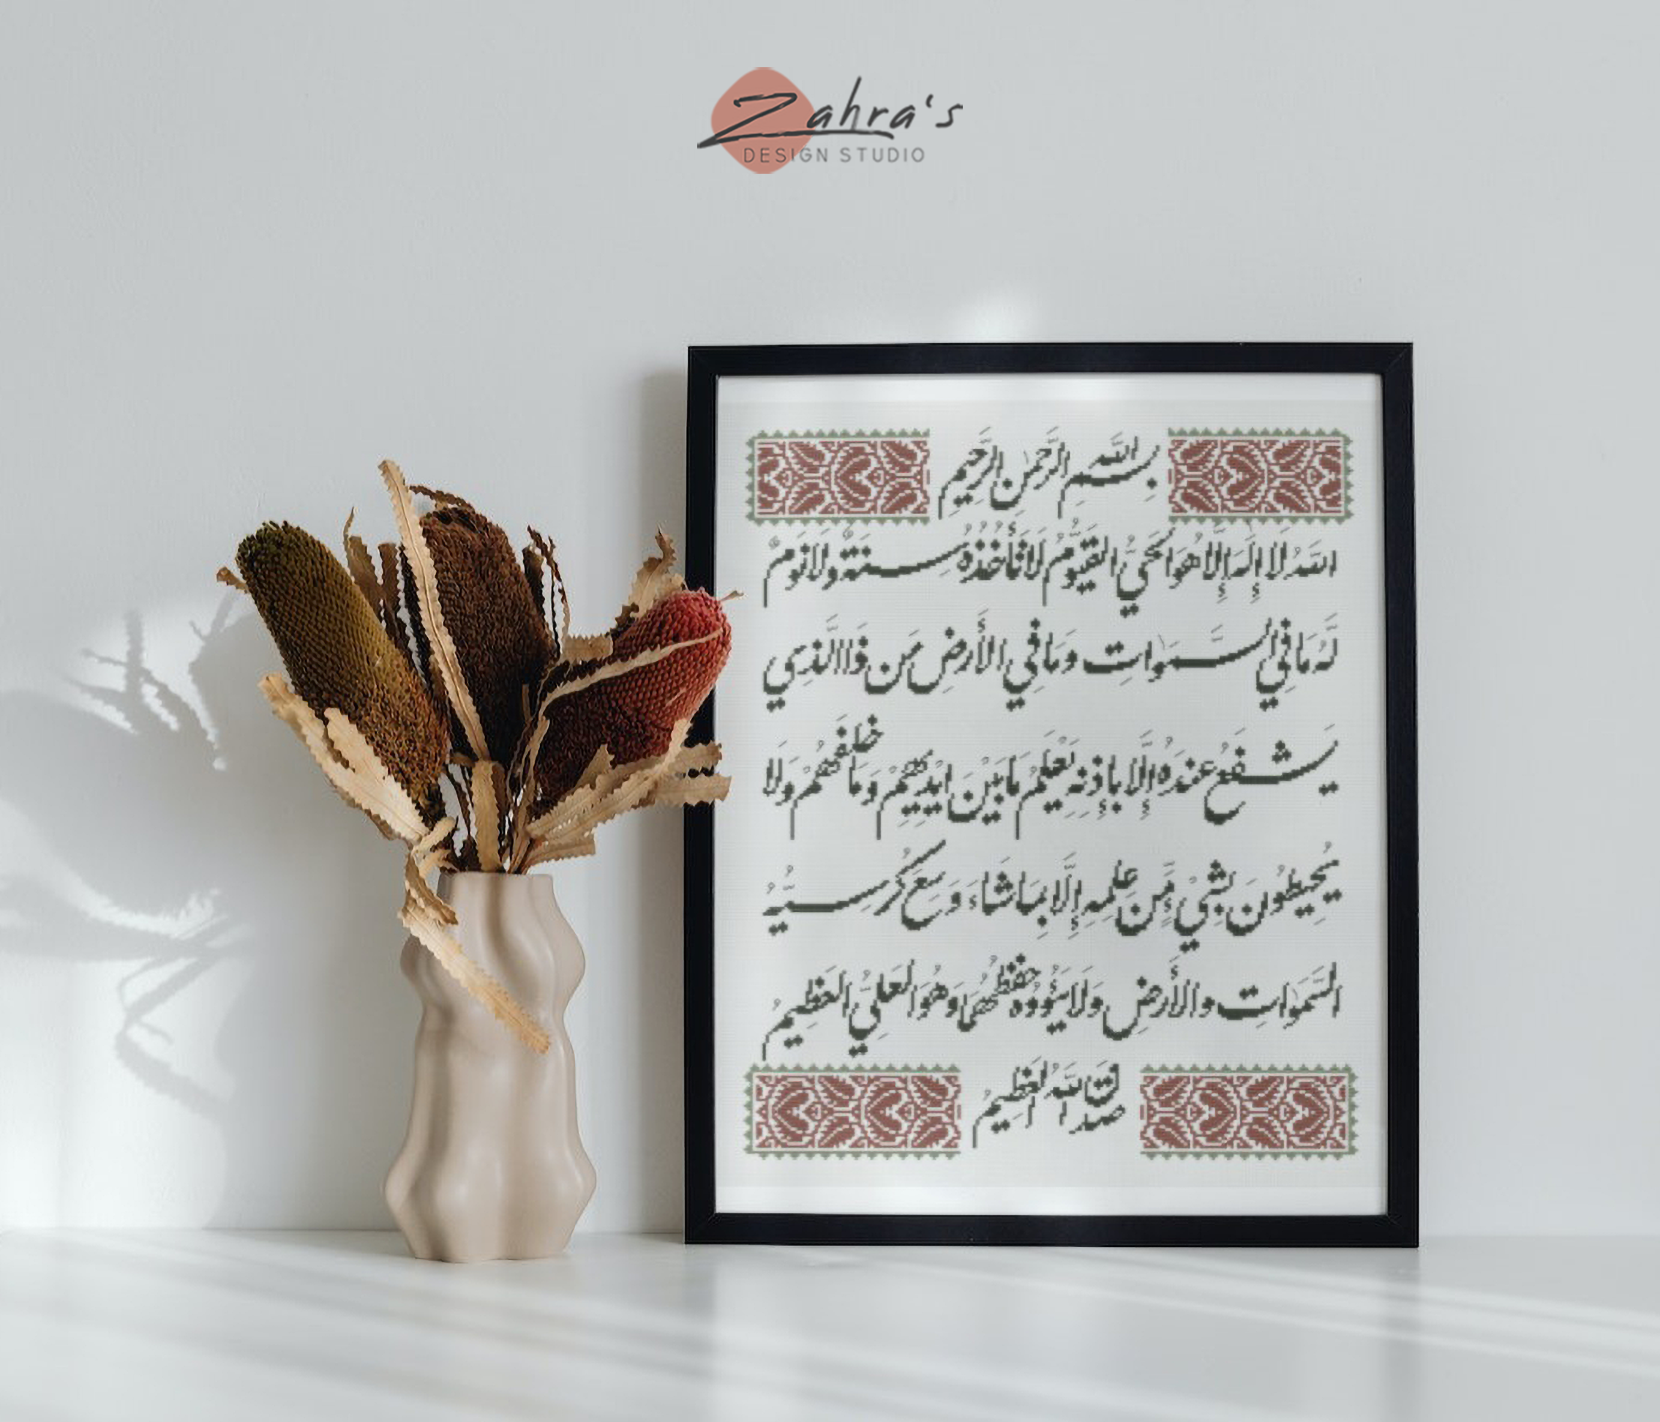 Zahra's
DESIGN STUDIO
بِسْمِ اللهِ الرَّحْمٰنِ الرَّحِيمِ
اللهُ لَا إِلَهَ إِلَّا هُوَ الحَيُّ القَيُّومُ لَا تَأْخُذُهُ سِنَةٌ وَلَا نَوْمٌ
لَّهُ مَا فِي السَّمَوَاتِ وَمَا فِي الأَرْضِ مَن ذَا الَّذِي
يَشْفَعُ عِندَهُ إِلَّا بِإِذْنِهِ يَعْلَمُ مَا بَيْنَ ايْدِيهِمْ وَمَا خَلْفَهُمْ وَلَا
يُحِيطُونَ بِشَيْءٍ مِّنْ عِلمِهِ إِلَّا بِمَا شَاءَ وَسِعَ كُرْسِيُّهُ
السَّمَوَاتِ وَالأَرْضَ وَلَا يَئُودُهُ حِفْظُهُمَا وَهُوَ العَلِيُّ العَظِيمُ
صَدَقَ اللهُ العَظِيمُ